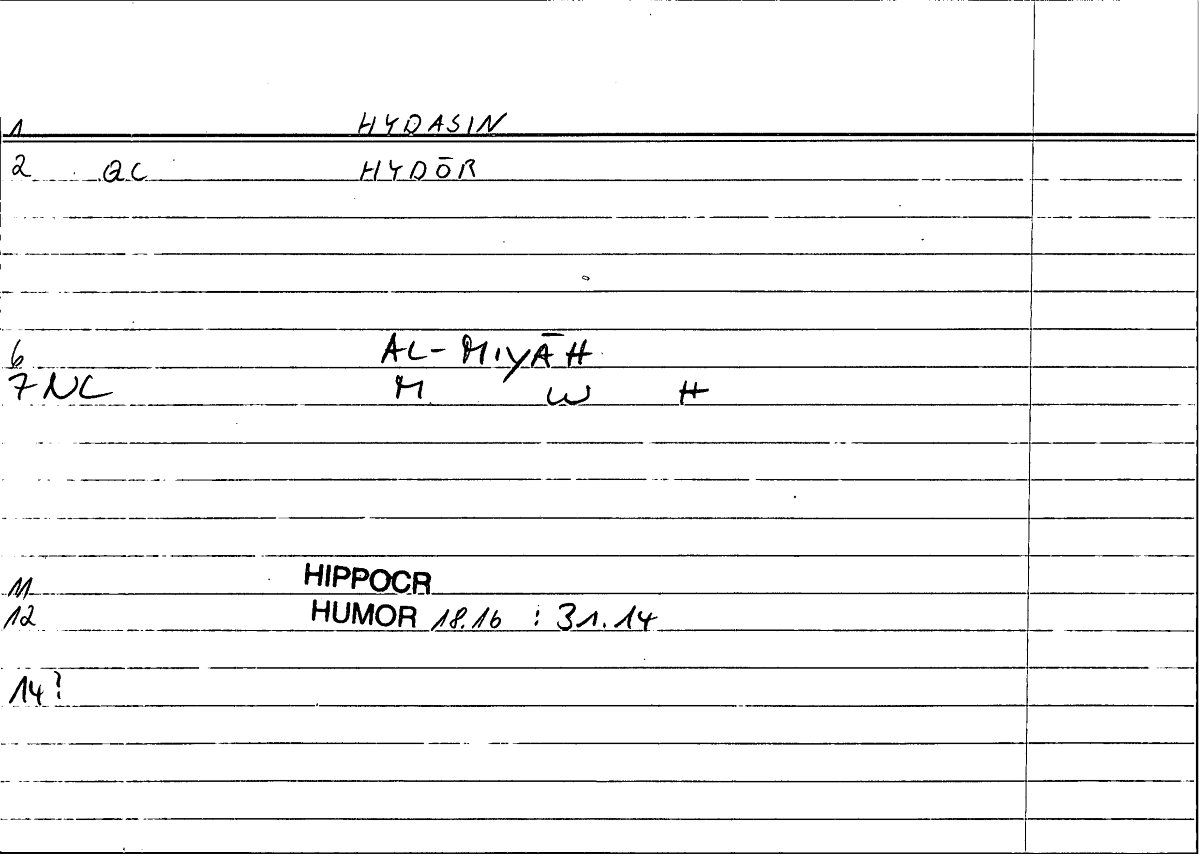 1 HYDASIN
2 GC HYDŌR
6 AL-MIYĀH
7 NC M W H
11 HIPPOCR
12 HUMOR 18.16 : 31.14
14?